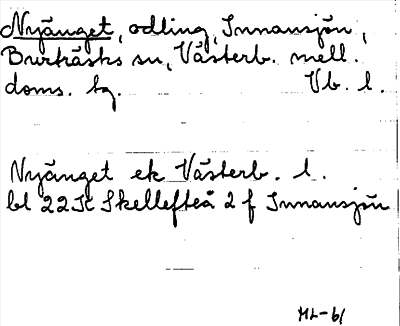 Nyänget, odling, Innansjön,
Burträsks sn, Västerb. mell.
doms. tg. Vb. l.
Nyänget ek Västerb. l.
bl 22K Skellefteå 2 f Innansjön
ML-61